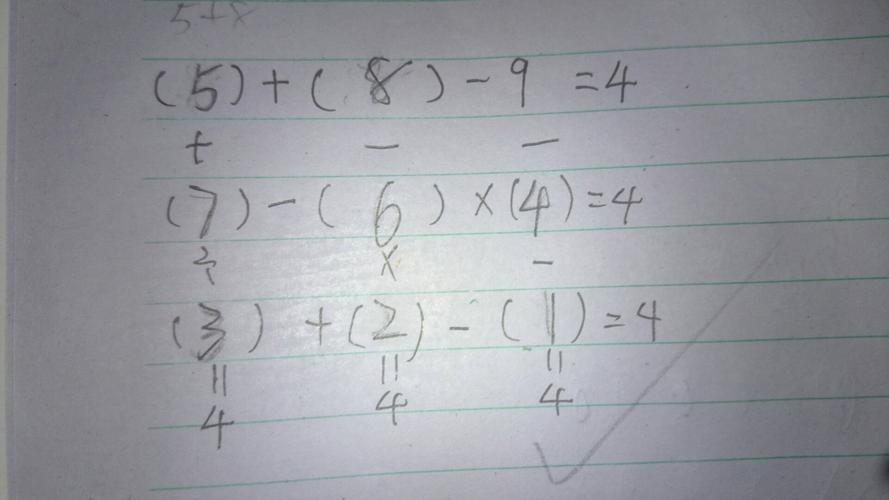 5+8
(5)+(8)-9=4
+ - -
(7)-(6)×(4)=4
÷ × -
(3)+(2)-(1)=4
= = =
4 4 4